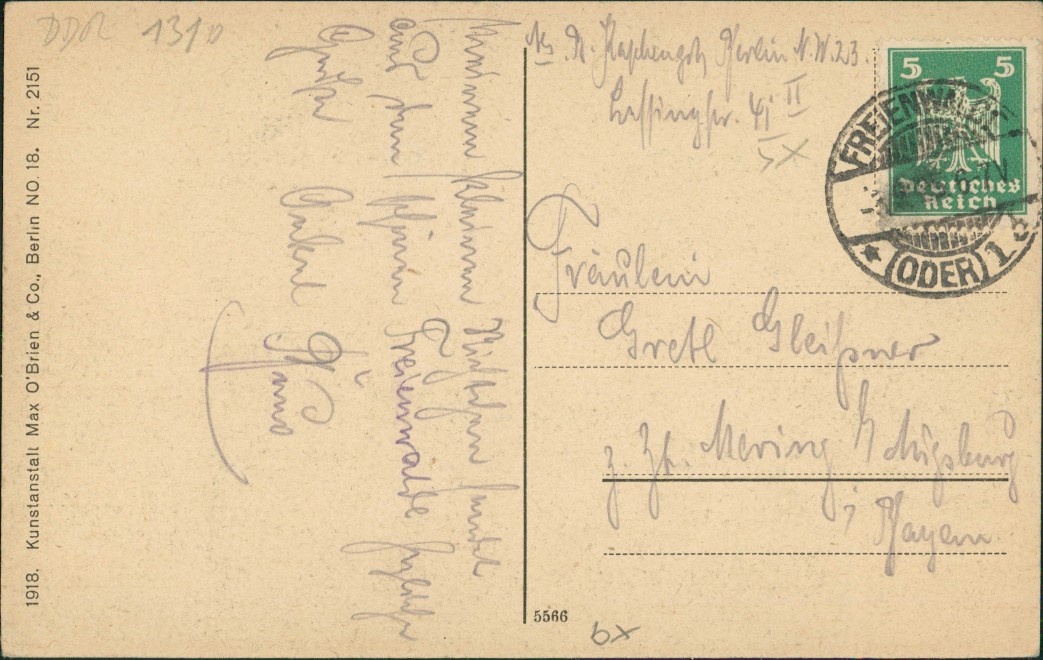 DDR 1310
1918. Kunstanstalt Max O'Brien & Co., Berlin NO. 18. Nr. 2151
Meiner kleinen Nichte sendet
aus dem schönen Freienwalde herzliche
Grüße Onkel
Hans
Abs. R. Berlin N.W. 23.
Lessingstr. 41 II
5 5
Deutsches
Reich
FREIENWALDE
(ODER) 1
Fräulein
Gretl Gleißner
z. Zt. Mering b/ Augsburg
i/ Bayern
5566
6x